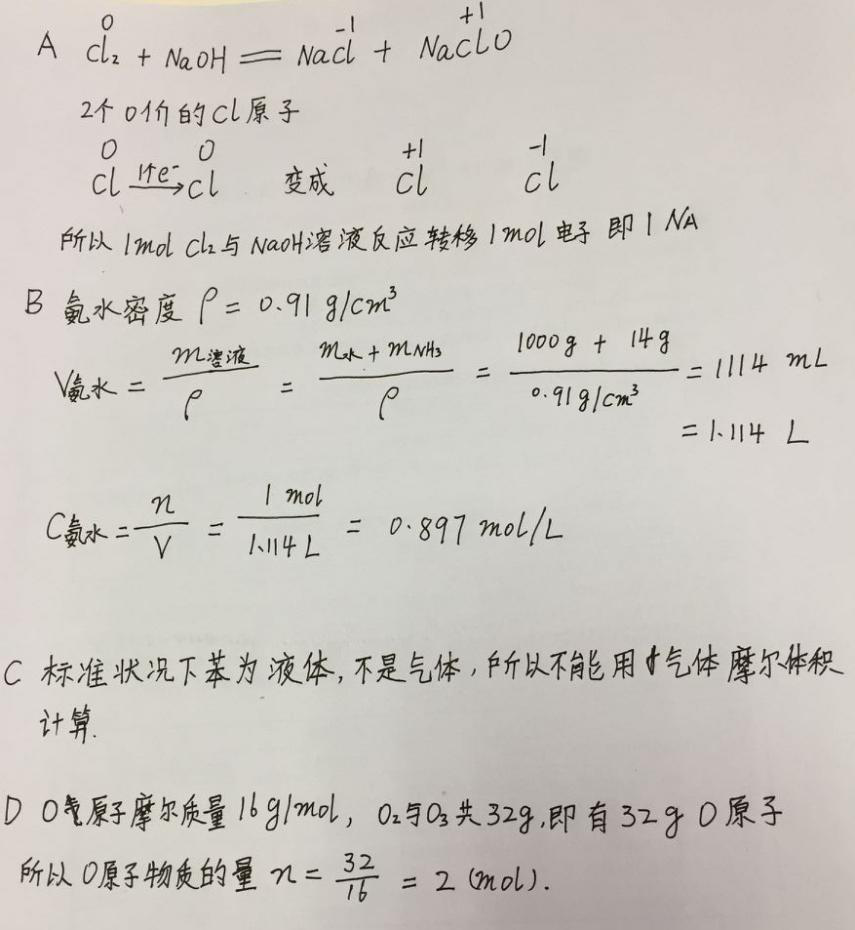 A Cl₂ + NaOH == NaCl + NaClO
0 -1 +1
2个 0价的Cl原子
0 0 +1 -1
Cl 1个e⁻→ Cl 变成 Cl Cl
所以 1mol Cl₂与 NaOH溶液反应转移 1mol 电子 即 1 NA
B 氨水密度 ρ = 0.91 g/cm³
V氨水 = m溶液/ρ = (m水 + mNH₃)/ρ = (1000g + 14g)/(0.91g/cm³) = 1114 mL
= 1.114 L
C氨水 = n/V = 1 mol/1.114 L = 0.897 mol/L
C 标准状况下苯为液体,不是气体,所以不能用气体摩尔体积
计算.
D O原子摩尔质量 16g/mol, O₂与O₃共32g,即有32g O原子
所以 O原子物质的量 n = 32/16 = 2 (mol).